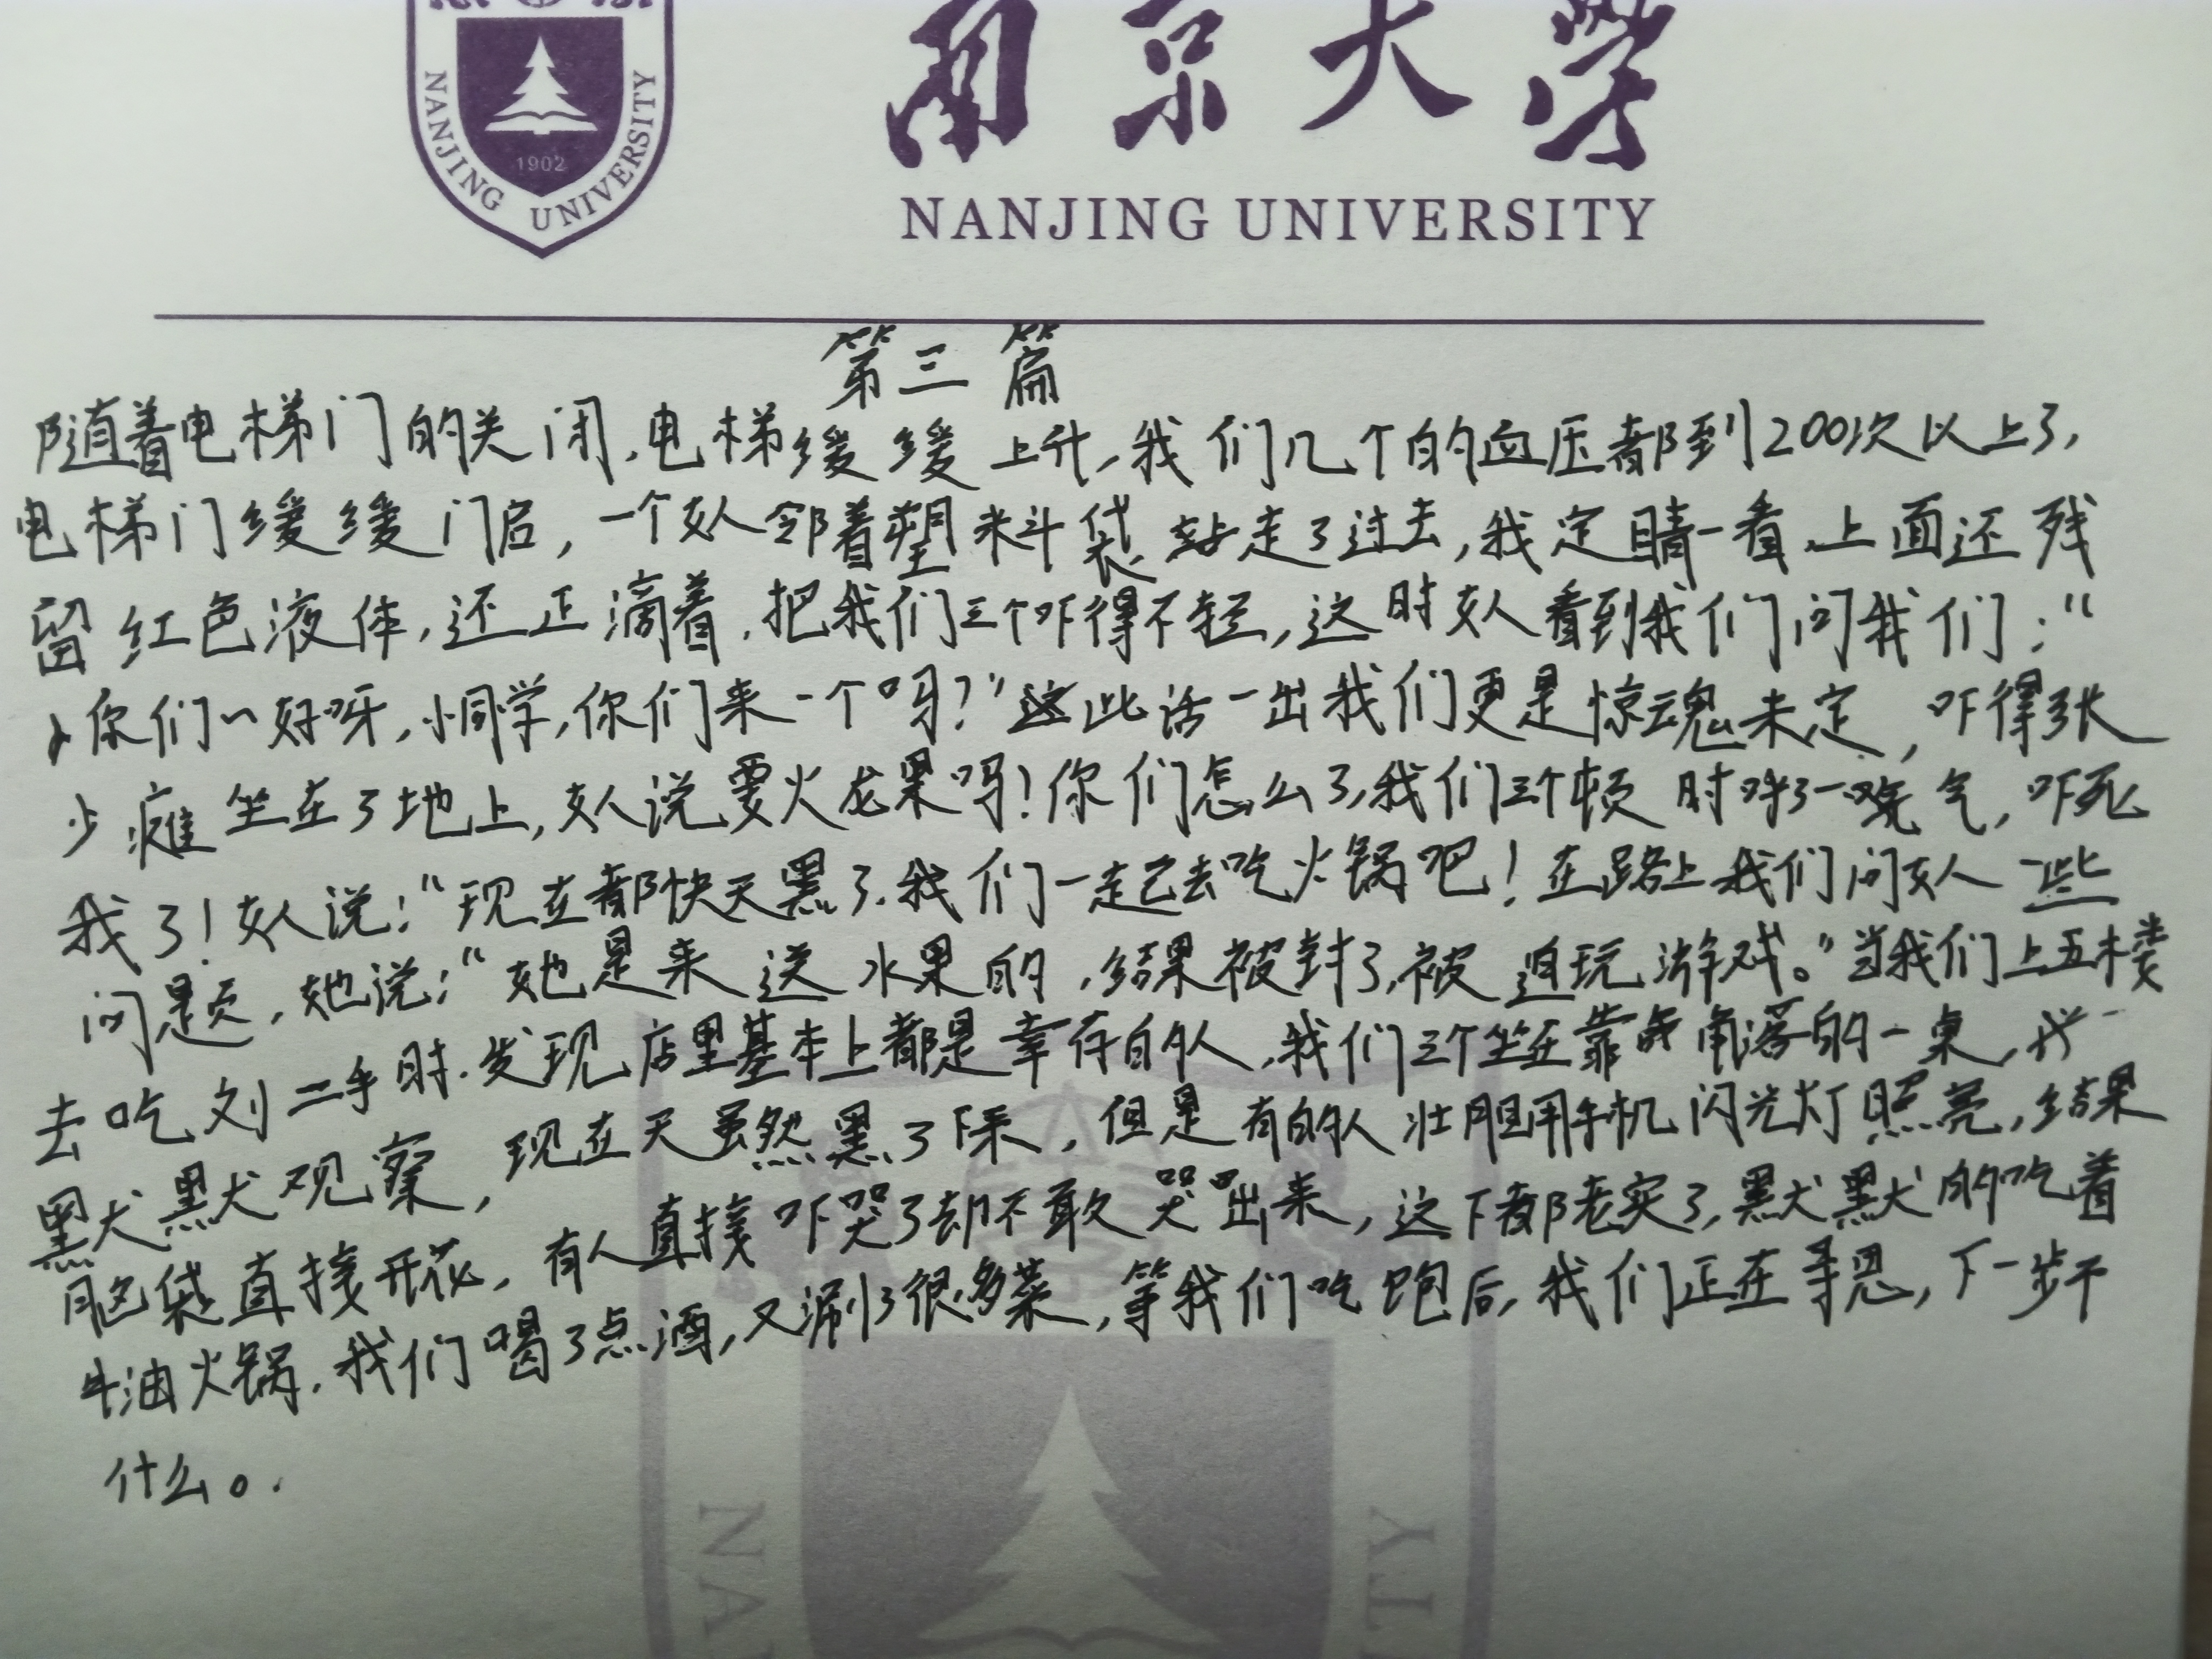 NANJING UNIVERSITY
1902
南京大学
NANJING UNIVERSITY
第三篇
随着电梯门的关闭,电梯缓缓上升,我们几个的血压都到200次以上了,
电梯门缓缓门后,一个女人邻着塑料袋走了过去,我定睛一看,上面还残
留红色液体,还正滴着,把我们三个吓得不轻,这时女人看到我们问我们:"
你们~好呀,小同学,你们来一个吗?"这此话一出我们更是惊魂未定,吓得张
少瘫坐在了地上,女人说要火龙果吗!你们怎么了,我们三个顿时呼了一口气,吓死
我了!女人说:"现在都快天黑了,我们一起去吃火锅吧!在路上我们问女人一些
问题,她说:"她是来送水果的,结果被封了,被迫玩游戏。"当我们上五楼
去吃刘二手时.发现店里基本上都是幸存的人,我们三个坐在靠角落的一桌,我一
默默观察,现在天虽然黑了下来,但是有的人壮胆用手机闪光灯照亮,结果
脑袋直接开花,有人直接吓哭了却不敢哭出来,这下都老实了,默默的吃着
牛油火锅.我们喝了点酒,又涮了很多菜,等我们吃饱后,我们正在寻思,下一步干
什么。
NA
ITY